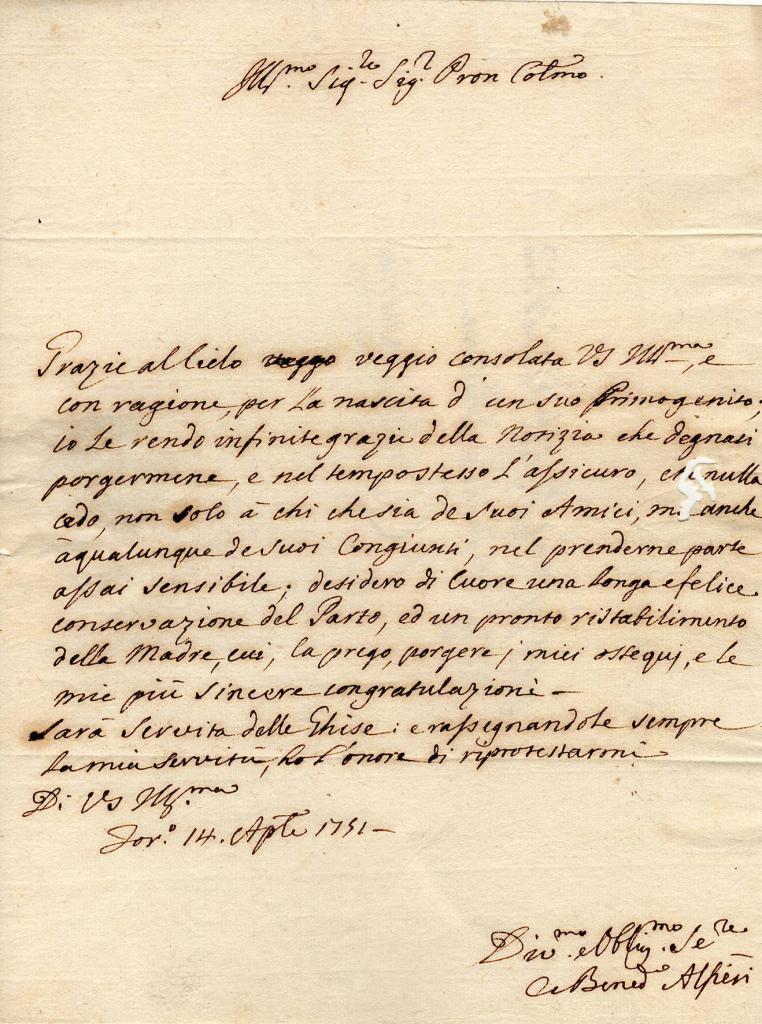 Ill.mo Sig.re Sig.r Pron Colmo.
Grazie al Cielo veggio consolata VS Ill.ma, e
con ragione, per La nascita d'un suo Primogenito;
io Le rendo infinite grazie della Notizia che degnasi
porgermene, e nel tempo stesso L'assicuro, che nulla
cedo, non solo à chi che sia de suoi Amici, mà anche
à qualunque de suoi Congiunti, nel prenderne parte
assai sensibile; desidero di Cuore una longa e felice
conservazione del Parto, ed un pronto ristabilimento
della Madre, cui, la prego, porgere j miei ossequj, e le
mie più sincere congratulazioni –
Sarà Servita delle Ghise: e rassegnandole sempre
La mia servitù, ho L'onore di riprotestarmi
Di VS Ill.ma
Tor.o 14. Aple 1751 –
Div.mo e Obblig.mo Se.re
Benedo Alfieri